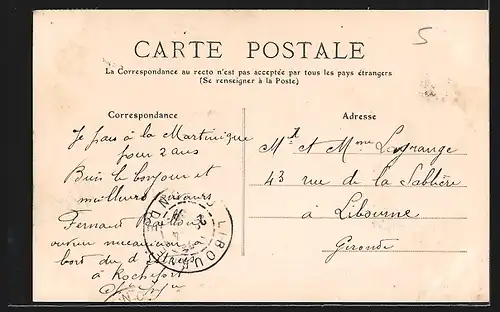 5
CARTE POSTALE
La Correspondance au recto n'est pas acceptée par tous les pays étrangers
(Se renseigner à la Poste)
Correspondance
Adresse
Je pars à la Martinique
pour 2 ans
bonjour et
meilleurs
Fernand
mecanicien
bord du d'Estrées
à Rochefort
Mr et Mme Lagrange
43 rue de la Sablière
à Libourne
Gironde
LIBOURNE